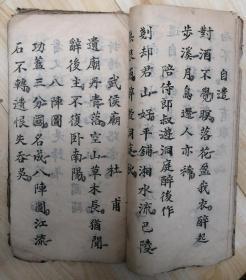 自遣
對酒不覺暝落花盈我衣醉起
步溪月鳥還人亦稀
陪侍郎叔遊洞庭醉後作
剗却君山好平鋪湘水流巴陵
無限酒醉殺洞庭秋
武侯廟 杜甫
遺廟丹青落空山草木長猶聞
辭後主不復卧南陽
八陣圖
功蓋三分國名成八陣圖江流
石不轉遺恨失吞吳